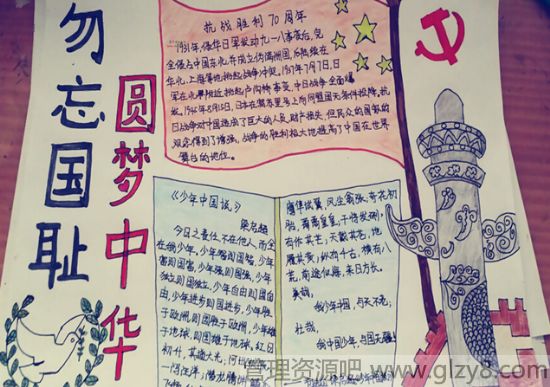 勿忘国耻
圆梦中华
抗战胜利70周年
1931年,侵华日军发动九一八事变后,完
全侵占中国东北,并成立伪满洲国,后陆续在
华北、上海等地挑起战争冲突,1937年7月7日,日
军在北平附近挑起卢沟桥事变,中日战争全面爆
发。1945年8月15日,日本在
日战争对中国造成了巨大的人员、财产损失,但民众的国家
观念得到了增强,战争的胜利极大地提高了中国在世界
舞台的地位。
《少年中国说》
梁启超
今日之责任,不在他人,而全
在我少年。少年智则国智,少年
富则国富,少年强则国强,少年
独立则国独立,少年自由则国自
由,少年进步则国进步,少年胜
于欧洲,则国胜于欧洲,少年雄
于地球,则国雄于地球。红日
初升,其道大光;河出
一泻汪洋;潜龙腾
鹰隼试翼,风尘翕张;奇花初
胎,矞矞皇皇;干将发硎,
有作其芒;天戴其苍,地
履其黄;纵有千古,横有八
荒;前途似海,来日方长。
美哉,
我少年中国,与天不老;
壮哉,
我中国少年,与国无疆!
管理资源吧 www.glzy8.com